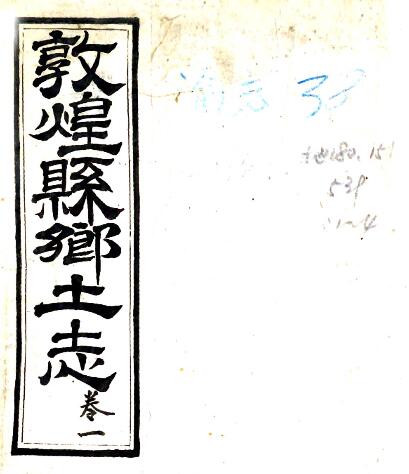 敦煌縣鄉土志
卷一
38
地180.151
538
1-4